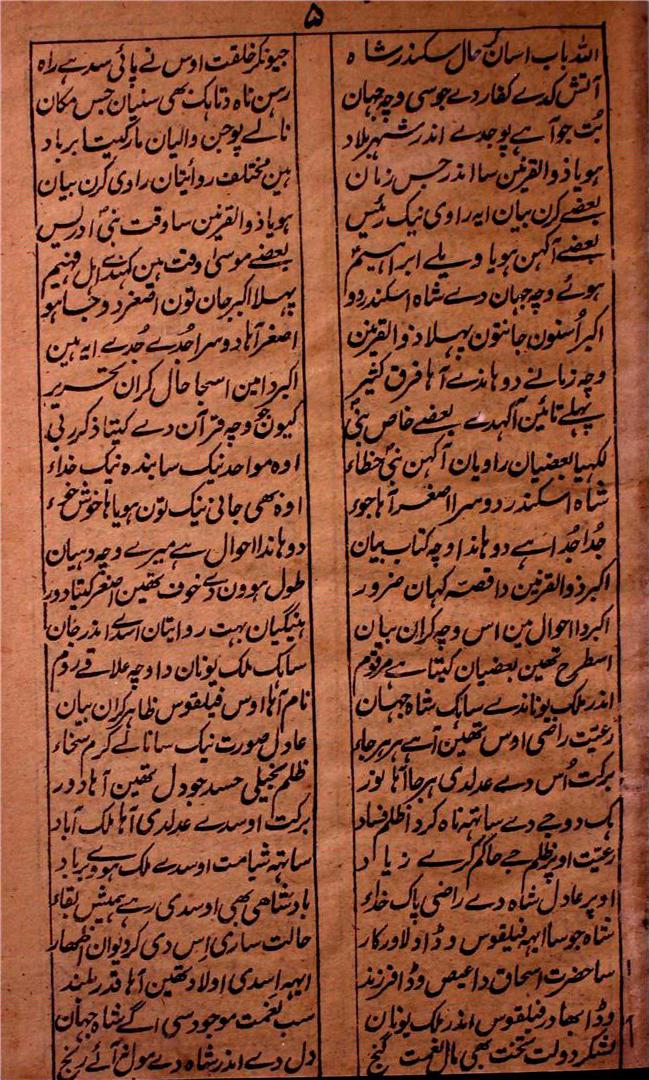 ۵
اللہ باب اسان کہ حال سکندر شاہ جیونکر خلقت اوس نے پائی سدہے راہ
آتش کدے کفار دے جو سی وچہ جہان رسن ناہ دتا ہک بھی سنیان جس مکان
بُت جو آہے پوجدے اندر شہر بلاد نالے پوجن والیان مار کیتا برباد
ہویا ذوالقرنین سا اندر جس زمان ہین مختلف روائیتان راوی کرن بیان
بعضے کرن بیان ایہ راوی نیک رئیس ہویا ذوالقرنین سا وقت نبی ادریس
بعضے آکہن ہویا ویلے ابراہیم بعضے موسیٰ وقت ہین کہندے اہل فہیم
ہوئے وچہ جہان دے شاہ اسکندر دو پہلا اکبر جان تون اصغر دوجا ہو
اکبر اُسنون جانتون پہلا ذوالقرنین اصغر آہا دوسرا جُدے جُدے ایہ ہین
وچہ زمانے دوہاندے آہا فرق کثیر اکبر دا مین اسجا حال کران تحریر
پہلے تائین آکہدے بعضے خاص نبی کیونجو وچہ قرآن دے کیتا ذکر ربی
لکہیا بعضیان راویان آکہن نبی خطاء اوہ مواحد نیک سا بندہ نیک خداء
شاہ اسکندر دوسرا اصغر آہا جوء اوہ بھی جانی نیک تون ہویا ہا خوش خوء
جُدا جُدا ہے دوہاندا وچہ کتاب بیان دوہاندا احوال ہے میرے وچہ دہیان
اکبر ذوالقرنین دا قصہ کہان ضرور طول ہوون دے خوف تھین اصغر کیتا دور
اکبر دا احوال مین اس وچہ کران بیان ہینگیان بہت روایتان اسدے اندر جان
اسطرح تھین بعضیان کیتا ہے مرقوم سا ہک ملک یونان دا وچہ علاقے روم
اندر ملک یوناندے سا ہک شاہ جہان نام آہا اوس فیلقوس ظاہر کران بیان
رعیّت راضی اوس تھین آہے ہر ہر جاء عادل صورت نیک سا نالے کرم سخاء
برکت اُس دے عدلدی ہر جا آہا نور ظلم بخیلی حسد جو دل تھین آہا دور
ہک دوجے دے ساتہہ ناہ کردا ظلم فساد برکت اوسدے عدلدی آہا ملک آباد
رعیّت اوپر ظلم جے حاکم کرے زیاد ساتہہ شیامت اوسدے ملک ہووے برباد
اوپر عادل شاہ دے راضی پاک خداء بادشاھی بھی اوسدی رہے ہمیش بقاء
شاہ جو سا ایہہ فیلقوس وڈا ولاور کار حالت ساری اس دی کردیوان اظہار
سا حضرت اسحاق دا عیص وڈا فرزند ایہہ اسدی اولاد تھین آہا قدر بلند
وڈا بہادر فیلقوس اندر ملک یونان سب نعمت موجود سی اگے شاہ جہان
لشکر دولت تخت بھی مال نعمت گنج دل دے اندر شاہ دے مول نہ آئے رنج